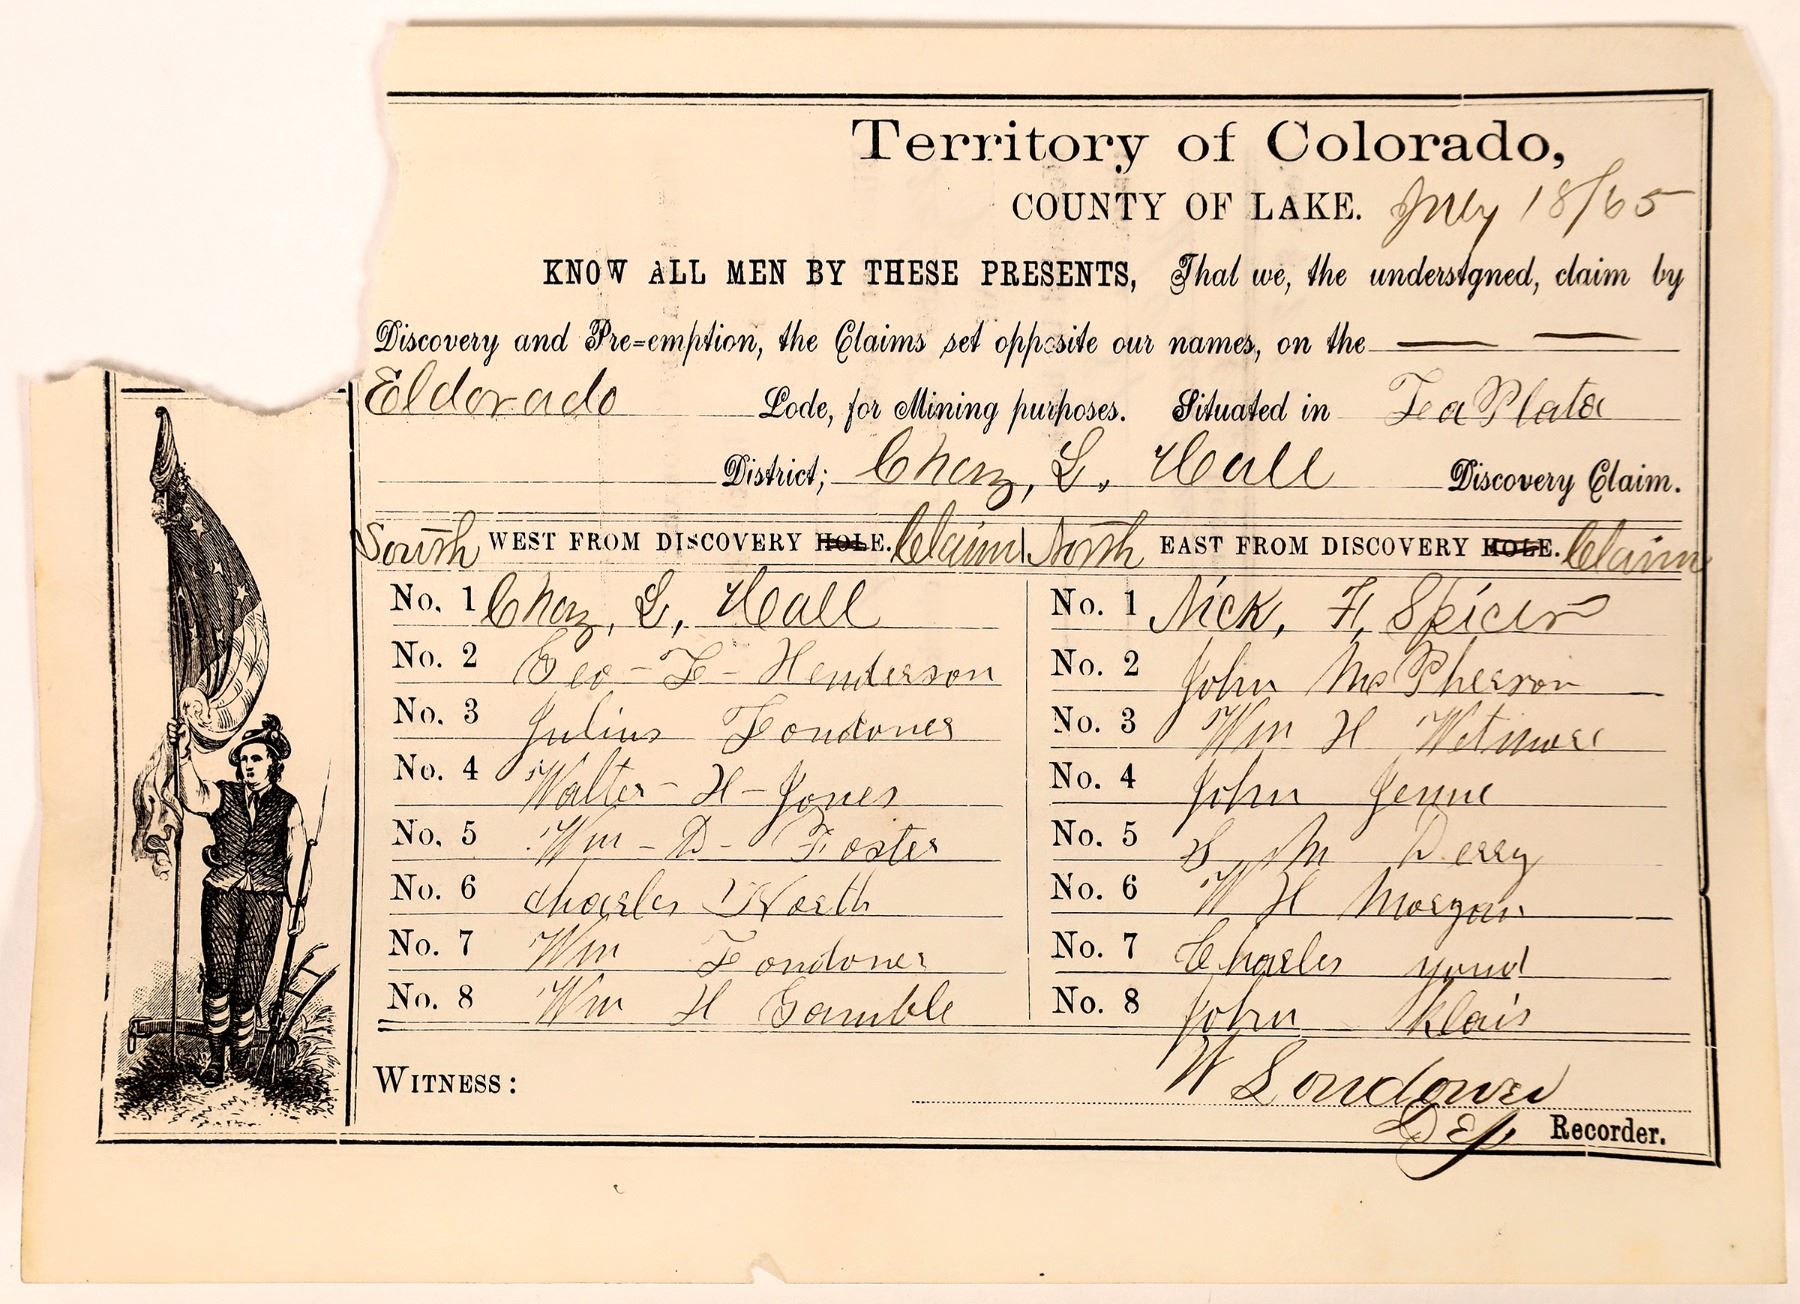 Territory of Colorado,
COUNTY OF LAKE. July 18/65
KNOW ALL MEN BY THESE PRESENTS, That we, the undersigned, claim by
Discovery and Pre=emption, the Claims set opposite our names, on the — —
Eldorado Lode, for Mining purposes. Situated in La Plata
District; Chaz, L. Hall Discovery Claim.
South WEST FROM DISCOVERY HOLE. Claim North EAST FROM DISCOVERY HOLE. Claim
No. 1 Chaz, L, Hall No. 1 Nick, F, Spicer
No. 2 Geo - L - Henderson No. 2 John McPherson
No. 3 Julius Londoner No. 3 Wm H Wetmore
No. 4 Walter - H - Jones No. 4 John Jenne
No. 5 Wm - D - Foster No. 5 M Derry
No. 6 Charles North No. 6 W H Morgan
No. 7 Wm Londoner No. 7 Charles
No. 8 Wm H Gamble No. 8 John
WITNESS: W Londoner
Dep Recorder.